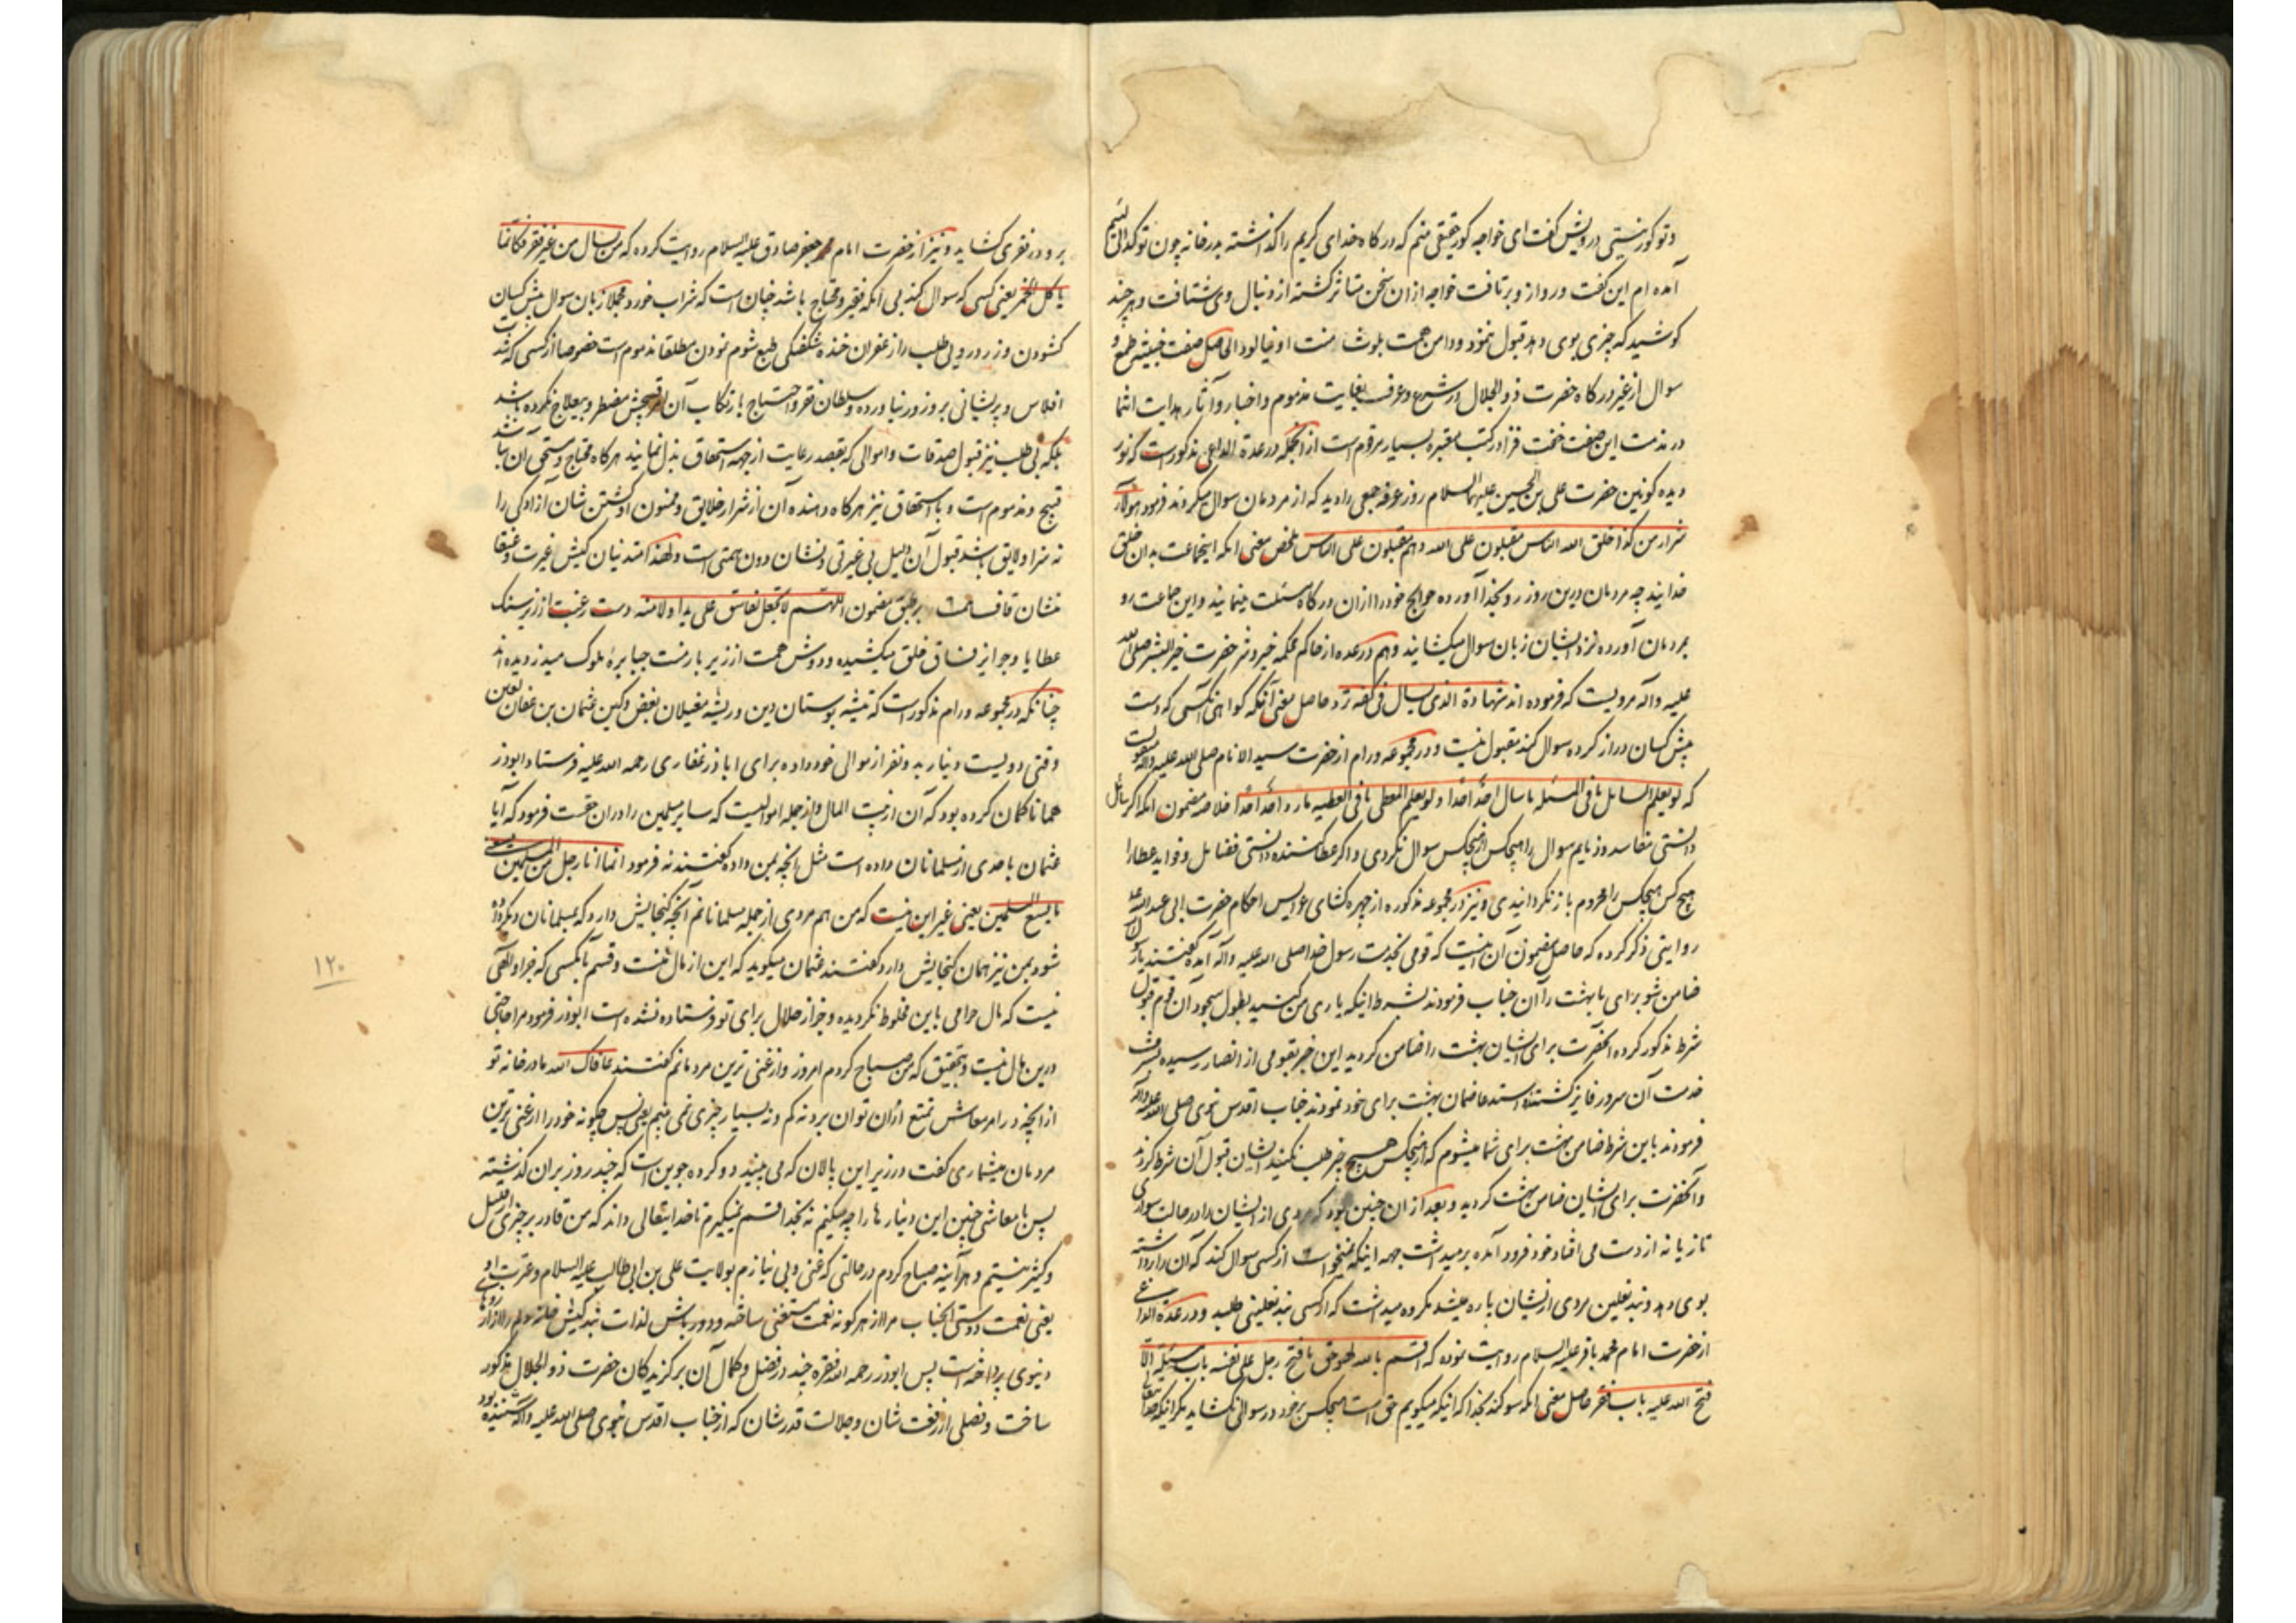 وتو کور نیستی درویش گفت ای خواجه کور حقیقی منم که درگاه خدای کریم را گذاشته بدر خانه چون تو گدای لئیم
آمده ام این گفت ورو از و برتافت خواجه ازان سخن متاثر گشته از دنبال وی شتافت و هر چند
کوشید که چیزی بوی دهد قبول ننمود ودامن همت بلوث منت او نیالود الحاصل صفت خبیثه طمع و
سوال از غیر درگاه حضرت ذو الجلال در شرع وعرف بغایت مذموم واخبار وآثار هدایت انتما
در مذمت این صفت خفت فزا در کتب معتبره بسیار مرقوم است از انجمله در عدة الداعی مذکور است که نور
دیده کونین حضرت علی بن الحسین علیهما السلام روز عرفه جمعی را دید که از مردمان سوال میکردند فرمود هولاء
شرار من خلق الله الناس مقبلون علی الله وهم مقبلون علی الناس ملخص معنی انکه اینجماعت بدان خلق
خدایند چه مردمان درین روز رو بخدا آورده حوایج خود را ازان درگاه مسئلت مینمایند واین جماعت رو
بمردمان آورده نزد ایشان زبان سوال میکشایند وهم در عده از حاکم محکمه خیر وشر حضرت خیر البشر صلی الله
علیه وآله مرویست که فرموده اند شهادة الذی یسال فی کفه ترد حاصل معنی آنکه گواهی آنکسی که دست
پیش کسان دراز کرده سوال کند مقبول نیست و در مجموعه ورام از حضرت سید الانام صلی الله علیه وآله منقولست
که لو یعلم السایل ما فی المسئله ما سال احد احدا ولو یعلم المعطی ما فی العطیه ما رد احد احدا خلاصه مضمون انکه اگر سائل
دانستی مفاسد وذمایم سوال را هیچکس از هیچکس سوال نکردی واگر عطا کننده دانستی فضایل وفواید عطا را
هیچ کس هیچکس را محروم باز نگردانیدی ونیز در مجموعه مذکوره از چهره کشای عرایس احکام حضرت ابی عبد الله
روایتی ذکر کرده که حاصل مضمون آن اینست که قومی بخدمت رسول خدا صلی الله علیه وآله آمده گفتند یا رسول الله
ضامن شو برای ما بهشت را آن جناب فرمودند بشرط اینکه یاری من کنید بطول سجود آن قوم قبول
شرط مذکور کرده انحضرت برای ایشان بهشت را ضامن گردید این خبر بقومی از انصار رسیده بشرف
خدمت آن سرور فایز گشته استدعا ضمان بهشت برای خود نمودند جناب اقدس نبوی صلی الله علیه وآله
فرمودند باین شرط ضامن بهشت برای شما میشوم که از هیچکس هیچ چیز طلب نکنید ایشان قبول آن شرط کردند
وانحضرت برای ایشان ضامن بهشت گردید وبعد از ان چنین بود که مردی از ایشان را در حالت سواری
تازیانه از دست می افتاد خود فرود آمده بر میداشت جهه اینکه نمیخواست از کسی سوال کند که آن را برداشته
بوی دهد وبند نعلین مردی از ایشان پاره میشد مکروه میداشت که از کسی بند نعلینی طلبد ودر عدة الداعی
از حضرت امام محمد باقر علیه السلام روایت نموده که اقسم بالله لهو حق ما فتح رجل علی نفسه باب مسئلة الا
فتح الله علیه باب فقر حاصل معنی انکه سوگند بخدا که اینکه میگویم حق است هیچکس بر خود در سوالی نکشاید مگر اینکه خدا تعالی
برو در فقری کشاید ونیز از حضرت امام جعفر صادق علیه السلام روایت کرده که من یسال من غیر فقر فکانما
یاکل الخمر یعنی کسی که سوال کند بی انکه فقیر ومحتاج باشد چنان است که شراب خورد مجملا زبان سوال پیش کسان
کشودن وزردرویی طلب را از غفران خنده شکفتگی طبع شوم نمودن مطلقا مذموم است خصوصا از کسی که شدت
افلاس وپریشانی برو زور نیاورده وسلطان فقر واحتیاج بارتکاب آن امر قبیحش مضطر وبیعلاج نکرده باشد
بلکه بی طلب نیز قبول صدقات واموالی که بقصد رعایت از جهه استحقاق بذل نمایند هرگاه محتاج ومستحق آن نباشد
قبیح ومذموم است وبا استحقاق نیز هرگاه دهنده آن از شرار خلایق وممنون او گشتن شان آزادگی را
نه سزا ولایق باشد قبول آن دلیل بی غیرتی ونشان دون همتی است ولهذا متدینان کیش غیرت وعنقا
نشان قاف بر طبق مضمون اللهم لا تجعل لفاسق علی یدا ولا منه دست رغبت از زیر سنک
عطایا وجوایز فساق خلق میکشیده ودوش همت از زیر بار منت جبابره ملوک میدزدیده اند
چنانکه در مجموعه ورام مذکور است که تیشه بوستان دین وریشه مغیلان بغض وکین عثمان بن عفان لعین
وقتی دویست دینار بدو نفر از موالی خود داده برای اباذر غفاری رحمه الله علیه فرستاد ابوذر
همانا گمان کرده بود که آن از بیت المال واز جمله اموالیست که سایر مسلمین را دران حقست فرمود که آیا
عثمان باحدی از مسلمانان داده است مثل انچه بمن داده گفتند نه فرمود انما انا رجل من المسلمین یسعنی
ما یسع المسلمین یعنی غیر این نیست که من هم مردی از جمله مسلمانانم آنچه گنجایش دارد که بمسلمانان دیگر داده
شود بمن نیز همان گنجایش دارد گفتند عثمان میگوید که این از مال منست وقسم بانکسی که جز او الهی
نیست که مال حرامی باین مخلوط نگردیده وجز از حلال برای تو فرستاده نشده است ابوذر فرمود مرا حاجتی
درین مال نیست وبتحقیق که من صباح کردم امروز واز غنی ترین مردمانم گفتند عافاک الله ما در خانه تو
از انچه در امر معاش تمتع ازان توان برد نه کم ونه بسیار چیزی نمی بینیم یعنی پس چگونه خود را از غنی ترین
مردمان میشماری گفت در زیر این پالان که می بینید دو کرده جوین است که چند روز بران گذشته
پس با معاشی چنین این دینار ها را چه میکنم نه بخدا قسم نمیگیرم تا خدایتعالی داند که من قادر بر چیزی از قلیل
وکثیر نیستم وهر آینه صباح کردم در حالتی که غنی وبی نیازم بولایت علی بن ابی طالب علیه السلام وعترت او
یعنی نعمت دوستی انجناب مرا از هر گونه نعمت مستغنی ساخته ودور باش لذات
دنیوی پرداخته است پس ابوذر رحمه الله فقره چند در فضل وکمال آن برگزیدگان حضرت ذو الجلال مذکور
ساخت وفصلی از رفعت شان وجلالت قدرشان که از جناب اقدس نبوی صلی الله علیه وآله شنیده بود
۱۲۰